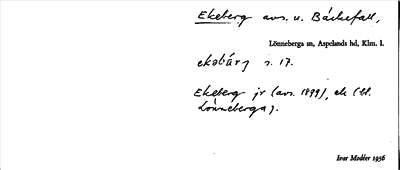 Ekeberg avs. u. Bäckefall,
Lönneberga sn, Aspelands hd, Klm. l.
ekəbärj s. 17.
Ekeberg jr (avs. 1899), ek (bl.
Lönneberga).
Ivar Modéer 1936